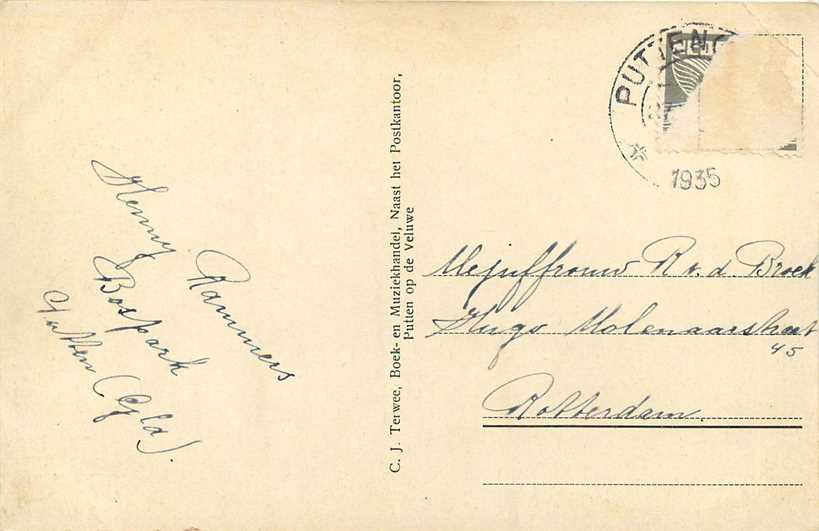 Henny Rammers
Bospark
Putten (Gld).
C. J. Terwee, Boek- en Muziekhandel, Naast het Postkantoor,
Putten op de Veluwe
PUTTEN
1935
Mejuffrouw R v. d. Broek
Hugo Molenaarstraat
45
Rotterdam